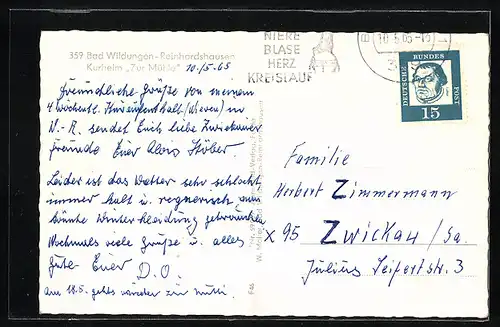 359 Bad Wildungen-Reinhardshausen
Kurheim „Zur Mühle" 10./5.65
Freundliche Grüße von meinem
4 wöchentl. Kuraufenthalt (Nieren) in
W.-R. sendet Euch liebe Zwickauer
Freunde Euer Alois
Leider ist das Wetter sehr schlecht
immer kalt u. regnerisch, man
könnte Winterkleidung gebrauchen
Nochmals viele Grüße u. alles
Gute Euer D.O.
Am 18.5. gehts wieder zur Mutti.
NIERE
BLASE
HERZ
KREISLAUF
DEUTSCHE BUNDES POST
15
Familie
Herbert Zimmermann
X 95 Zwickau/Sa.
Julius Seifertstr. 3